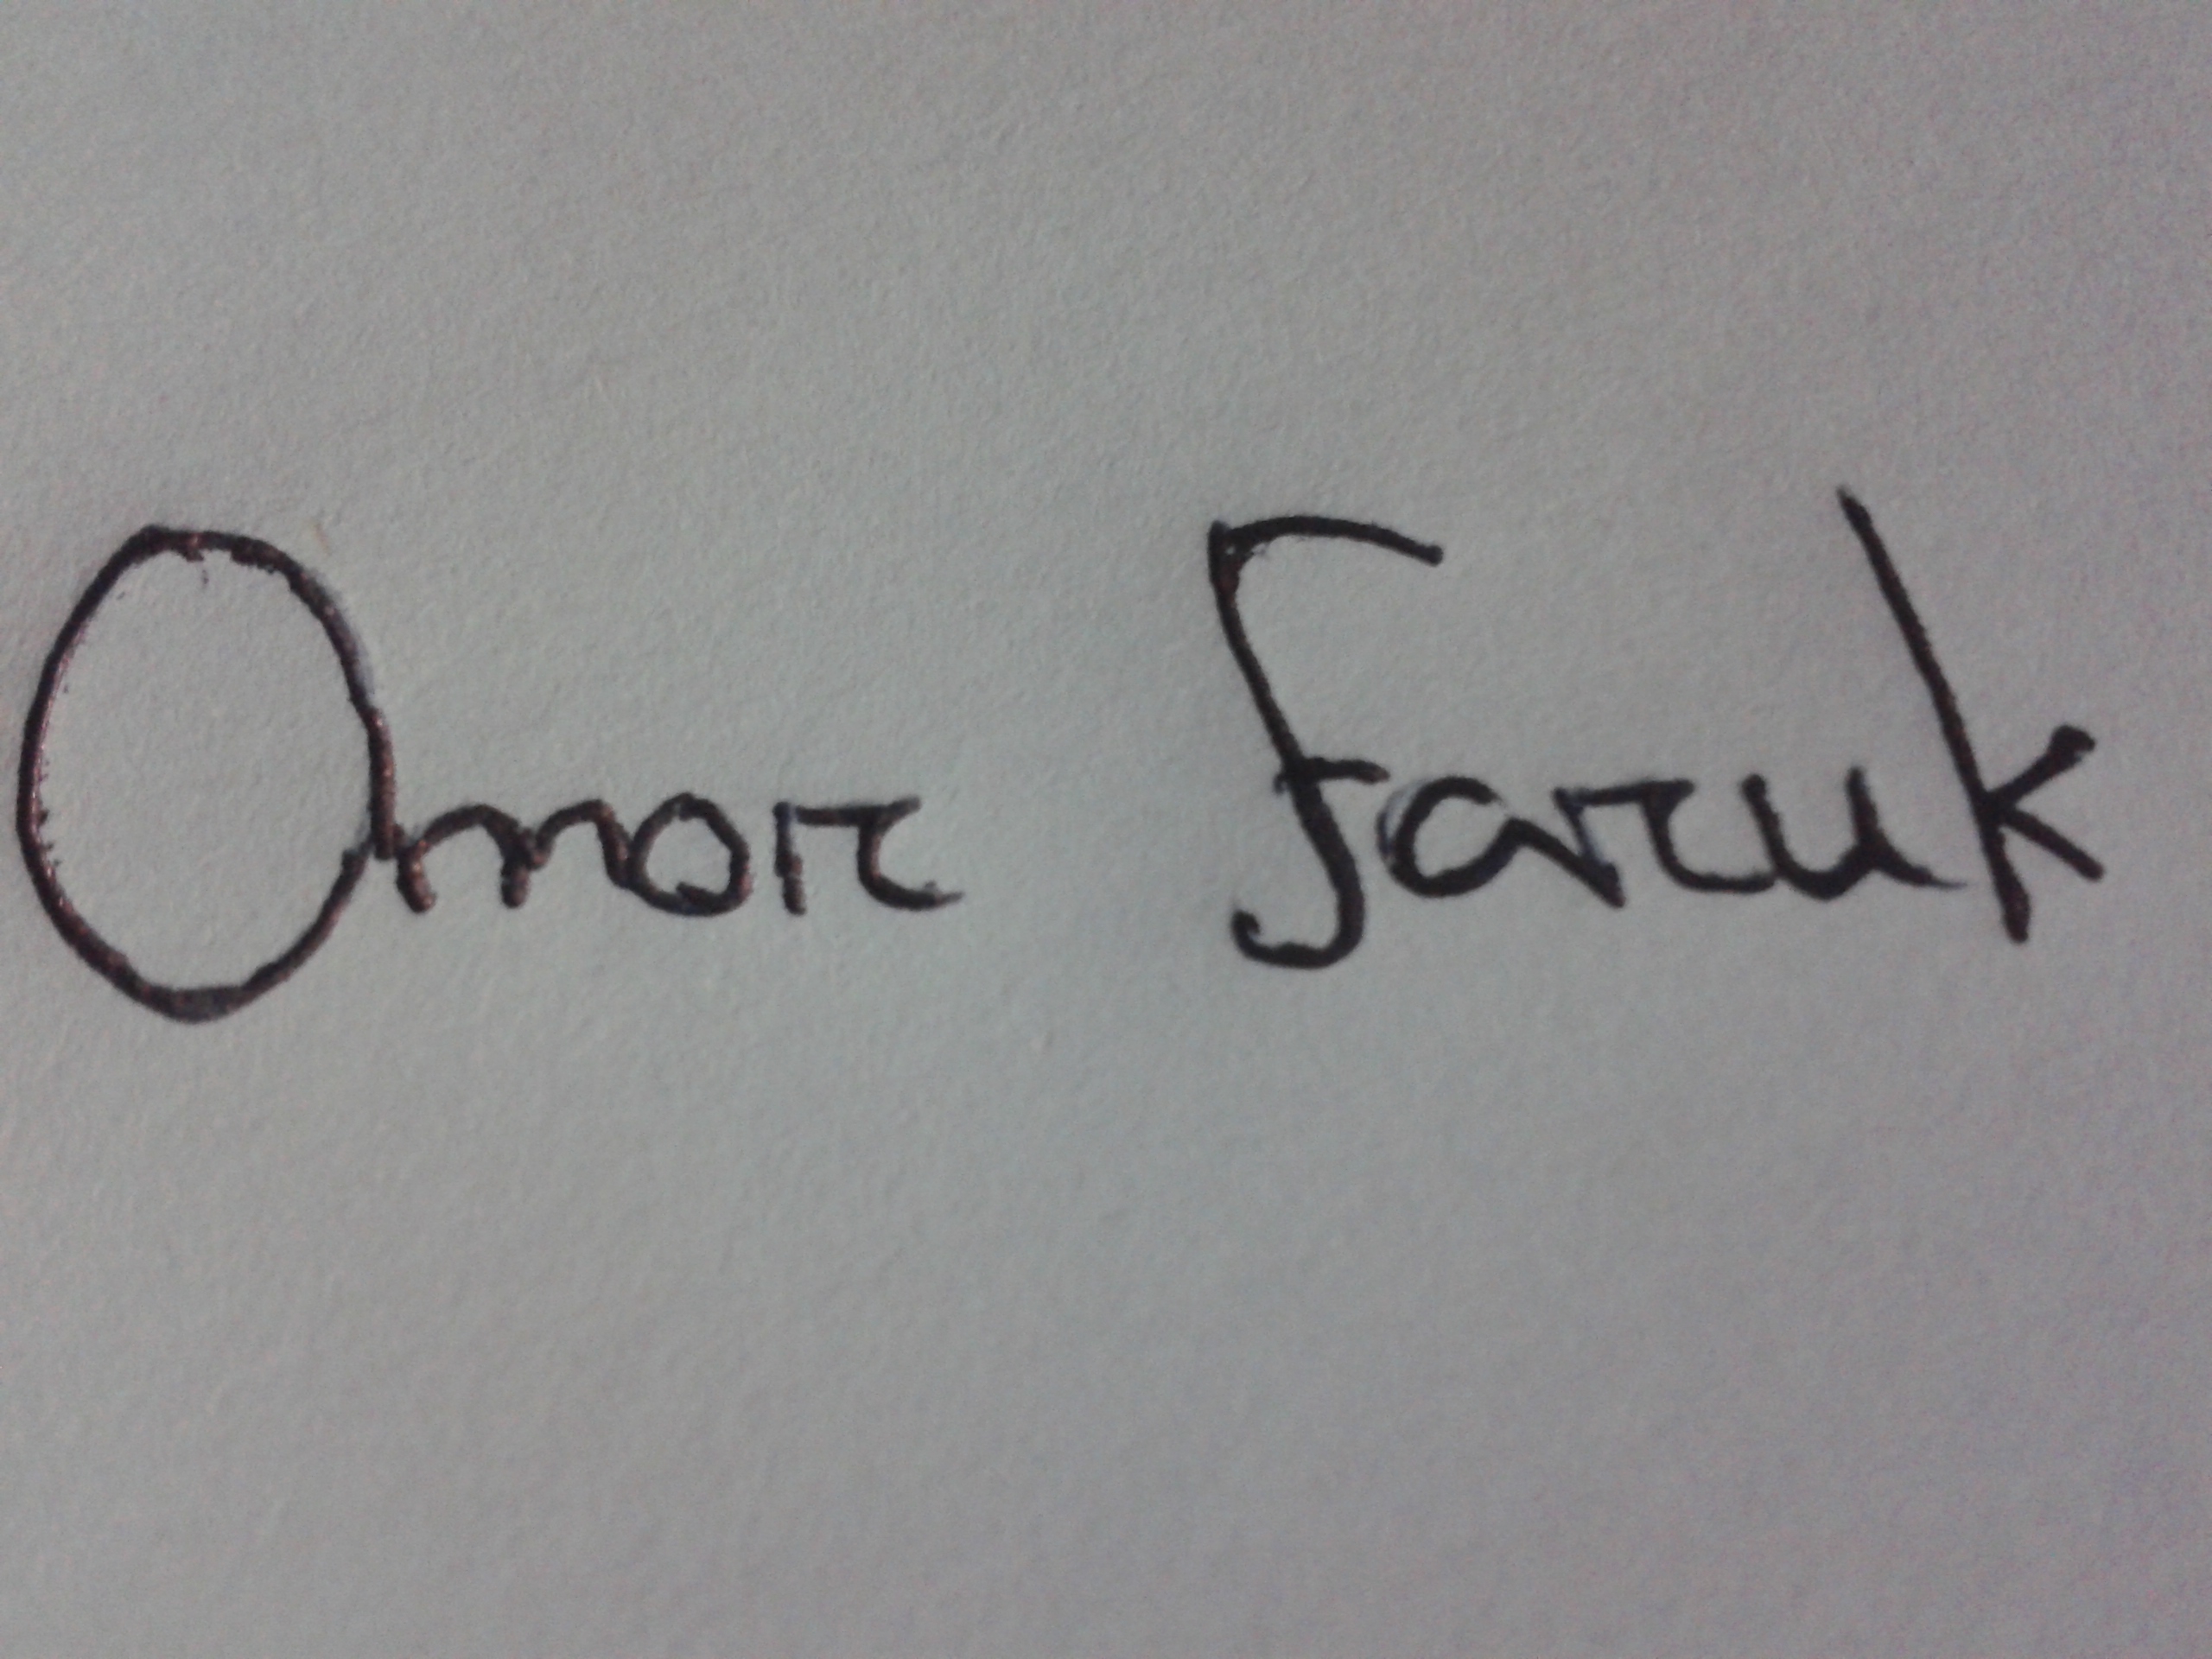 Omor Faruk